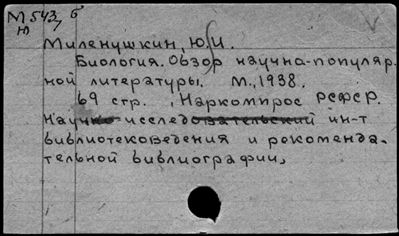 М543, б
Ю
Миленушкин, Ю.И.
Биология. Обзор научно-популяр.
ной литературы. М., 1938.
69 стр. , Наркомпрос РСФСР.
Научно-исследовательский ин-т
библиотековедения и рекоменда-
тельной библиографии,